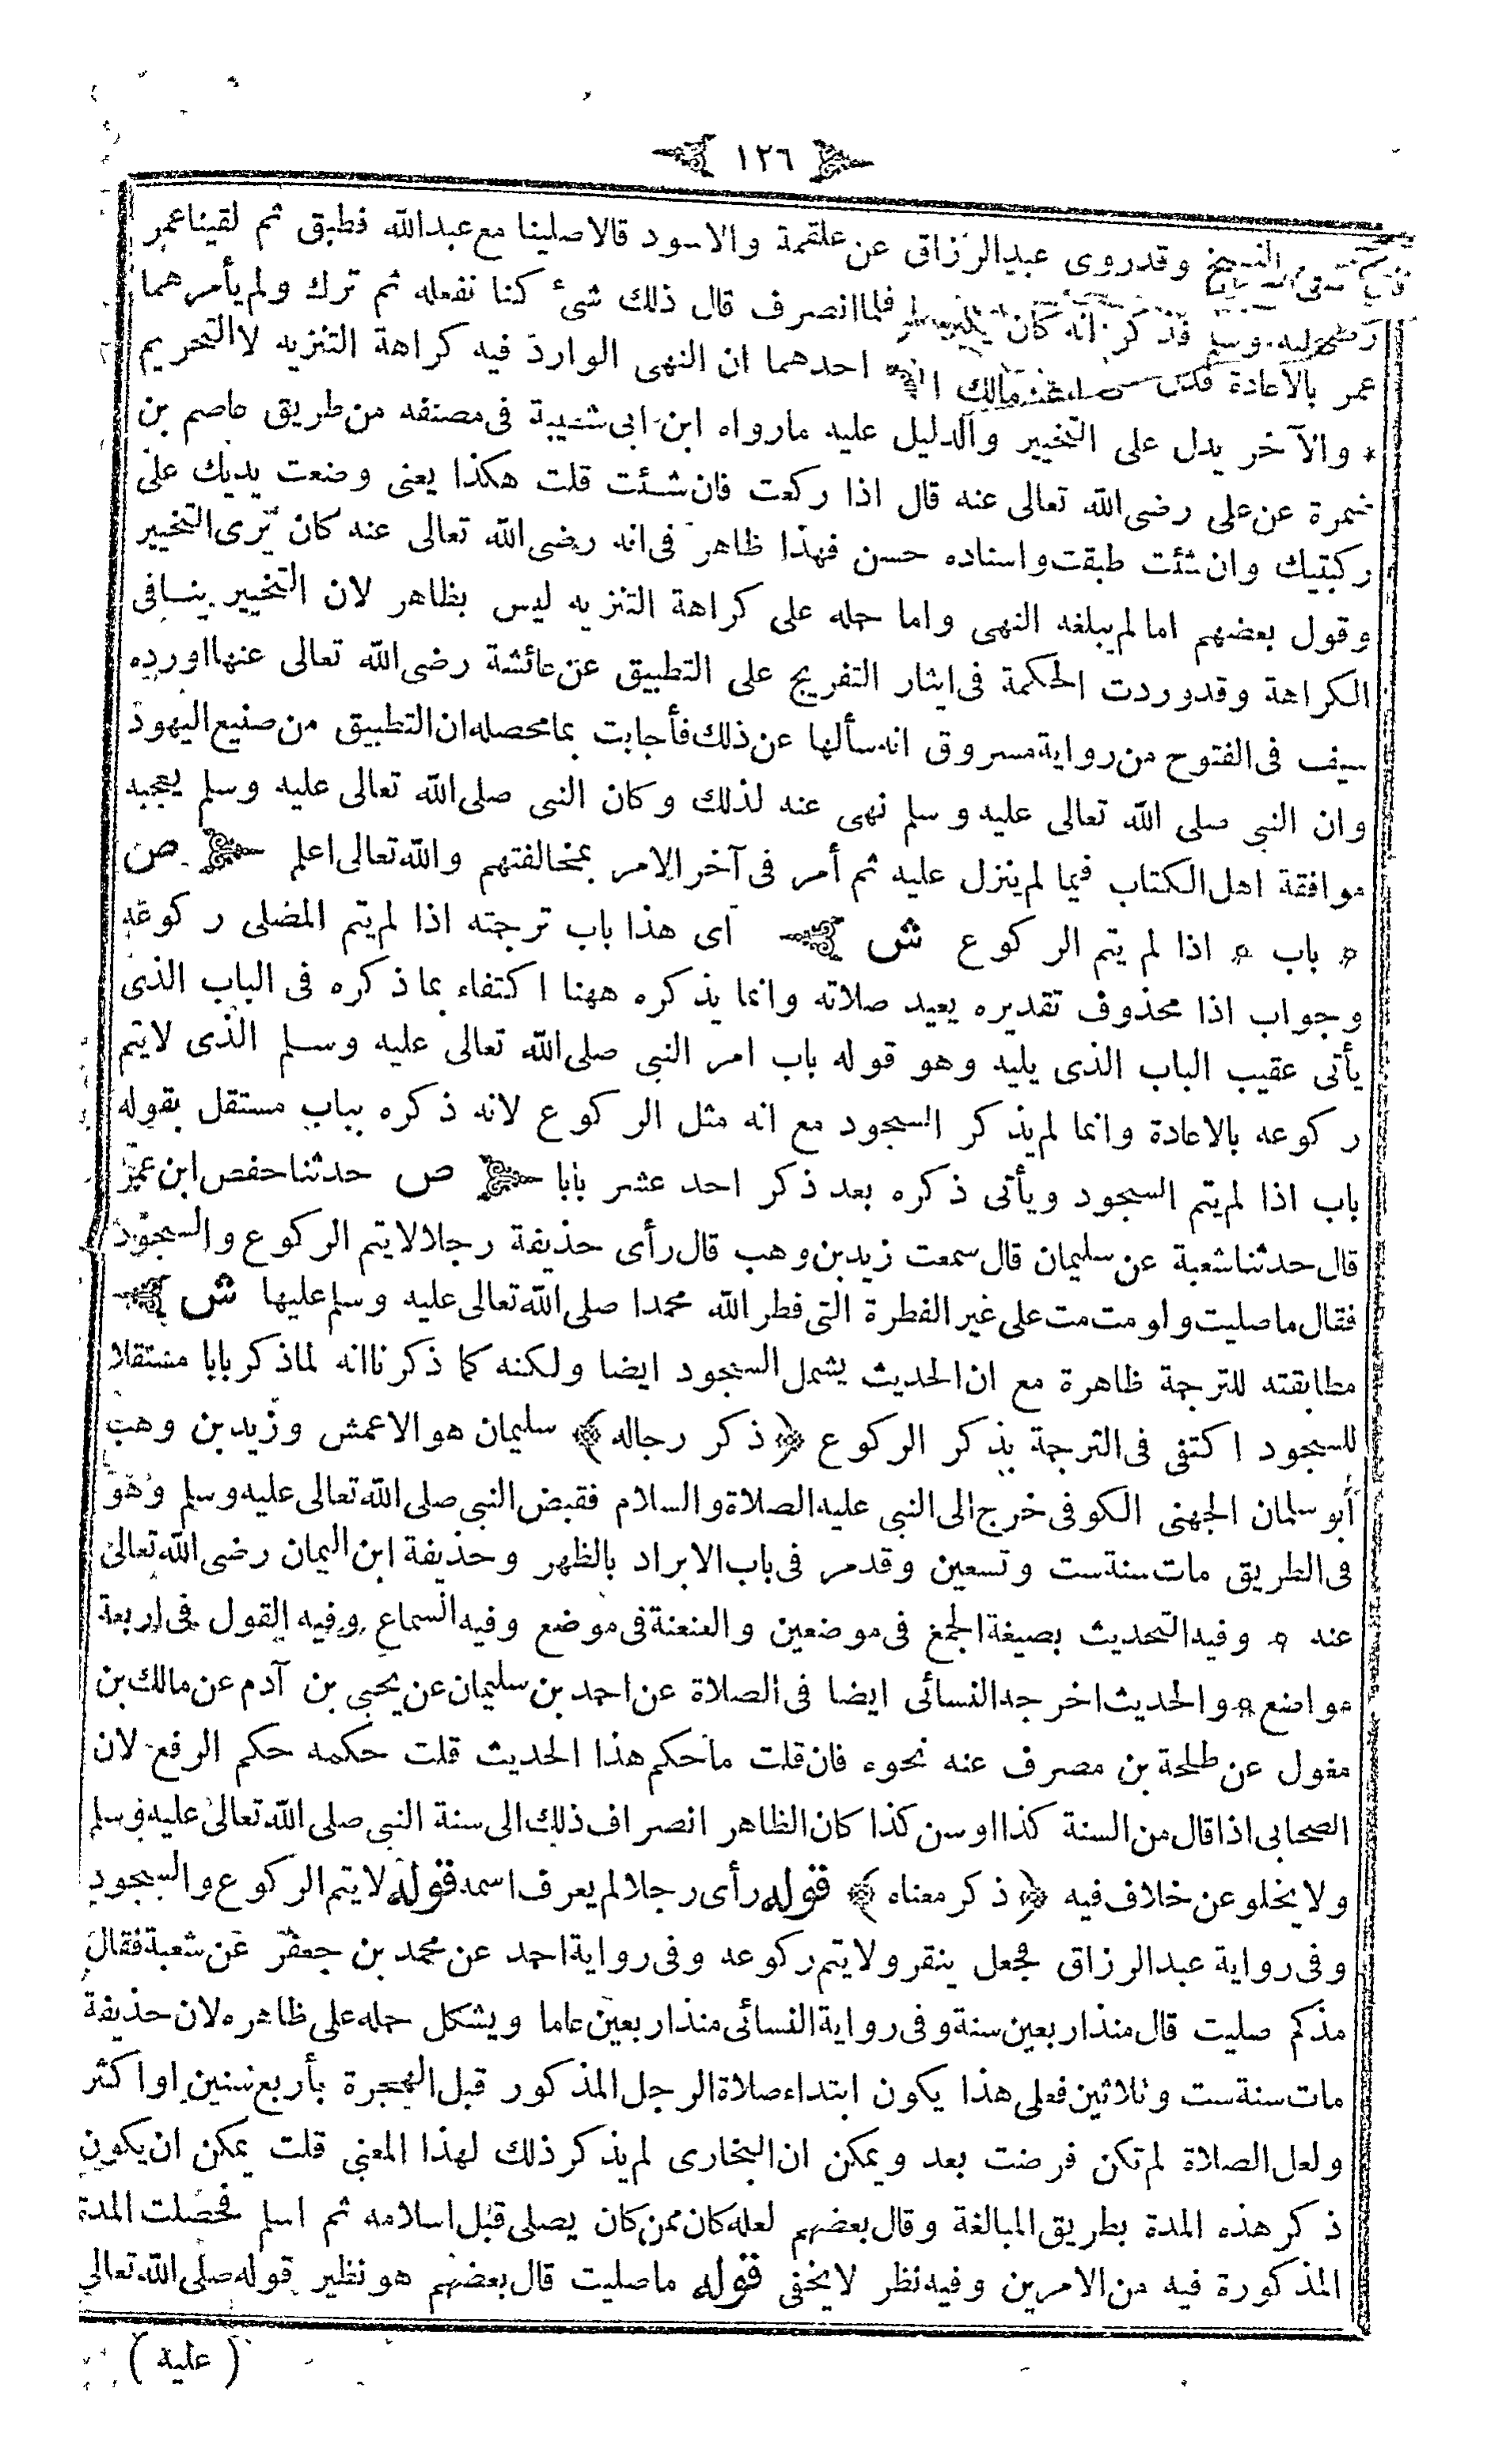 ١٢٦
النسخ وقدروى عبدالرزاق عن علقمة والاسود قالا صلينا مع عبدالله فطبق ثم لقينا عمر
فلما انصرف قال ذلك شئ كنا نفعله ثم ترك ولم يأمرهما
عمر بالاعادة احدهما ان النهى الوارد فيه كراهة التنزيه لا التحريم
* والآخر يدل على التخيير والدليل عليه مارواه ابن ابى شيبة فى مصنفه من طريق عاصم بن
ضمرة عن على رضى الله تعالى عنه قال اذا ركعت فان شئت قلت هكذا يعنى وضعت يديك على
ركبتيك وان شئت طبقت واسناده حسن فهذا ظاهر فى انه رضى الله تعالى عنه كان يرى التخيير
وقول بعضهم اما لم يبلغه النهى واما حمله على كراهة التنزيه ليس بظاهر لان التخيير ينافى
الكراهة وقدوردت الحكمة فى ايثار التفريج على التطبيق عن عائشة رضى الله تعالى عنها اورده
سيف فى الفتوح من رواية مسروق انه سألها عن ذلك فأجابت بما محصله ان التطبيق من صنيع اليهود
وان النبى صلى الله تعالى عليه وسلم نهى عنه لذلك وكان النبى صلى الله تعالى عليه وسلم يعجبه
موافقة اهل الكتاب فيما لم ينزل عليه ثم أمر فى آخر الامر بمخالفتهم والله تعالى اعلم ص
* باب * اذا لم يتم الركوع ش أى هذا باب ترجمته اذا لم يتم المصلى ركوعه
وجواب اذا محذوف تقديره يعيد صلاته وانما يذكره ههنا اكتفاء بما ذكره فى الباب الذى
يأتى عقيب الباب الذى يليه وهو قوله باب امر النبى صلى الله تعالى عليه وسلم الذى لايتم
ركوعه بالاعادة وانما لم يذكر السجود مع انه مثل الركوع لانه ذكره بباب مستقل بقوله
باب اذا لم يتم السجود ويأتى ذكره بعد ذكر احد عشر بابا ص حدثنا حفص ابن عمر
قال حدثنا شعبة عن سليمان قال سمعت زيد بن وهب قال رأى حذيفة رجلا لا يتم الركوع والسجود
فقال ماصليت ولو مت مت على غير الفطرة التى فطر الله محمدا صلى الله تعالى عليه وسلم عليها ش
مطابقته للترجمة ظاهرة مع ان الحديث يشمل السجود ايضا ولكنه كما ذكرنا انه لما ذكر بابا مستقلا
للسجود اكتفى فى الترجمة بذكر الركوع ﴿ ذكر رجاله ﴾ سليمان هو الاعمش وزيد بن وهب
أبو سلمان الجهنى الكوفى خرج الى النبى عليه الصلاة والسلام فقبض النبى صلى الله تعالى عليه وسلم وهو
فى الطريق مات سنة ست وتسعين وقدمر فى باب الابراد بالظهر وحذيفة ابن اليمان رضى الله تعالى
عنه * وفيه التحديث بصيغة الجمع فى موضعين والعنعنة فى موضع وفيه السماع وفيه القول فى اربعة
مواضع * والحديث اخرجه النسائى ايضا فى الصلاة عن احمد بن سليمان عن يحيى بن آدم عن مالك بن
مغول عن طلحة بن مصرف عنه نحوه فان قلت ما حكم هذا الحديث قلت حكمه حكم الرفع لان
الصحابى اذا قال من السنة كذا او سن كذا كان الظاهر انصراف ذلك الى سنة النبى صلى الله تعالى عليه وسلم
ولا يخلو عن خلاف فيه ﴿ ذكر معناه ﴾ قوله رأى رجلا لم يعرف اسمه قوله لا يتم الركوع والسجود
وفى رواية عبدالرزاق فجعل ينقر ولا يتم ركوعه وفى رواية احمد عن محمد بن جعفر عن شعبة فقال
مذكم صليت قال منذ اربعين سنة وفى رواية النسائى منذ اربعين عاما ويشكل حمله على ظاهره لان حذيفة
مات سنة ست وثلاثين فعلى هذا يكون ابتداء صلاة الرجل المذكور قبل الهجرة بأربع سنين او اكثر
ولعل الصلاة لم تكن فرضت بعد ويمكن ان البخارى لم يذكر ذلك لهذا المعنى قلت يمكن ان يكون
ذكر هذه المدة بطريق المبالغة وقال بعضهم لعله كان ممن كان يصلى قبل اسلامه ثم اسلم فحصلت المدة
المذكورة فيه من الامرين وفيه نظر لا يخفى قوله ماصليت قال بعضهم هو نظير قوله صلى الله تعالى
( عليه )